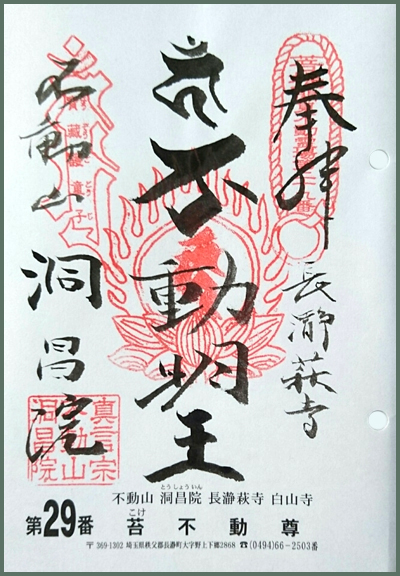 奉拝
長瀞萩寺
不動明王
不動山
洞昌院
真言宗
不動山
洞昌院
とうしょういん
不動山 洞昌院 長瀞萩寺 白山寺
こけ
第29番 苔不動尊
〒369-1302 埼玉県秩父郡長瀞町大字野上下郷2868 ☎(0494)66-2503番